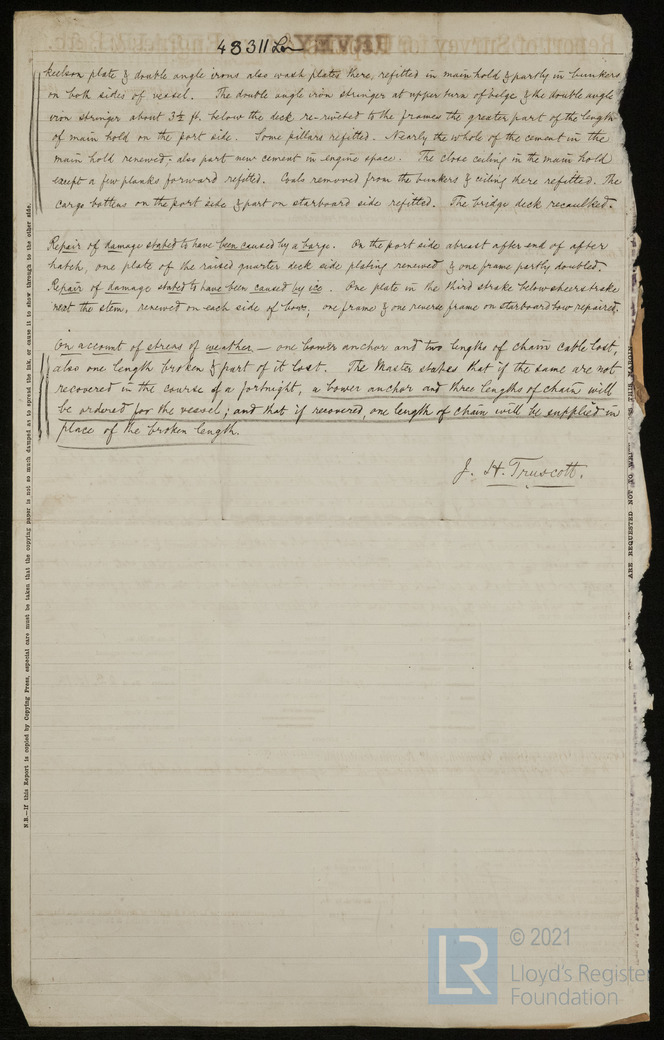 48311 Lon
keelson plate & double angle irons also wash plates there, refitted in main hold & partly in bunkers
on both sides of vessel. The double angle iron stringer at upper turn of bilge & the double angle
iron stringer about 3½ ft. below the deck re-riveted to the frames the greater part of the length
of main hold on the port side. Some pillars refitted. Nearly the whole of the cement in the
main hold renewed, also part new cement in engine space. The close ceiling in the main hold
except a few planks forward refitted. Coals removed from the bunkers & ceiling there refitted. The
cargo battens on the port side & part on starboard side refitted. The bridge deck recaulked.
Repair of damage stated to have been caused by a barge. On the port side abreast after end of after
hatch, one plate of the raised quarter deck side plating renewed & one frame partly doubled.
Repair of damage stated to have been caused by ice. One plate in the third strake below sheerstrake
next the stem, renewed on each side of bows, one frame & one reverse frame on starboard bow repaired.
On account of stress of weather — one bower anchor and two lengths of chain cable lost,
also one length broken & part of it lost. The Master states that if the same are not
recovered in the course of a fortnight, a bower anchor and three lengths of chain will
be ordered for the vessel; and that if recovered, one length of chain will be supplied in
place of the broken length.
J. H. Truscott.
N.B.—If this Report is copied by Copying Press, especial care must be taken that the copying paper is not so much damped as to spread the ink, or cause it to show through to the other side.
ARE REQUESTED NOT TO
THIS MARGIN
© 2021
LR
Lloyd's Register
Foundation